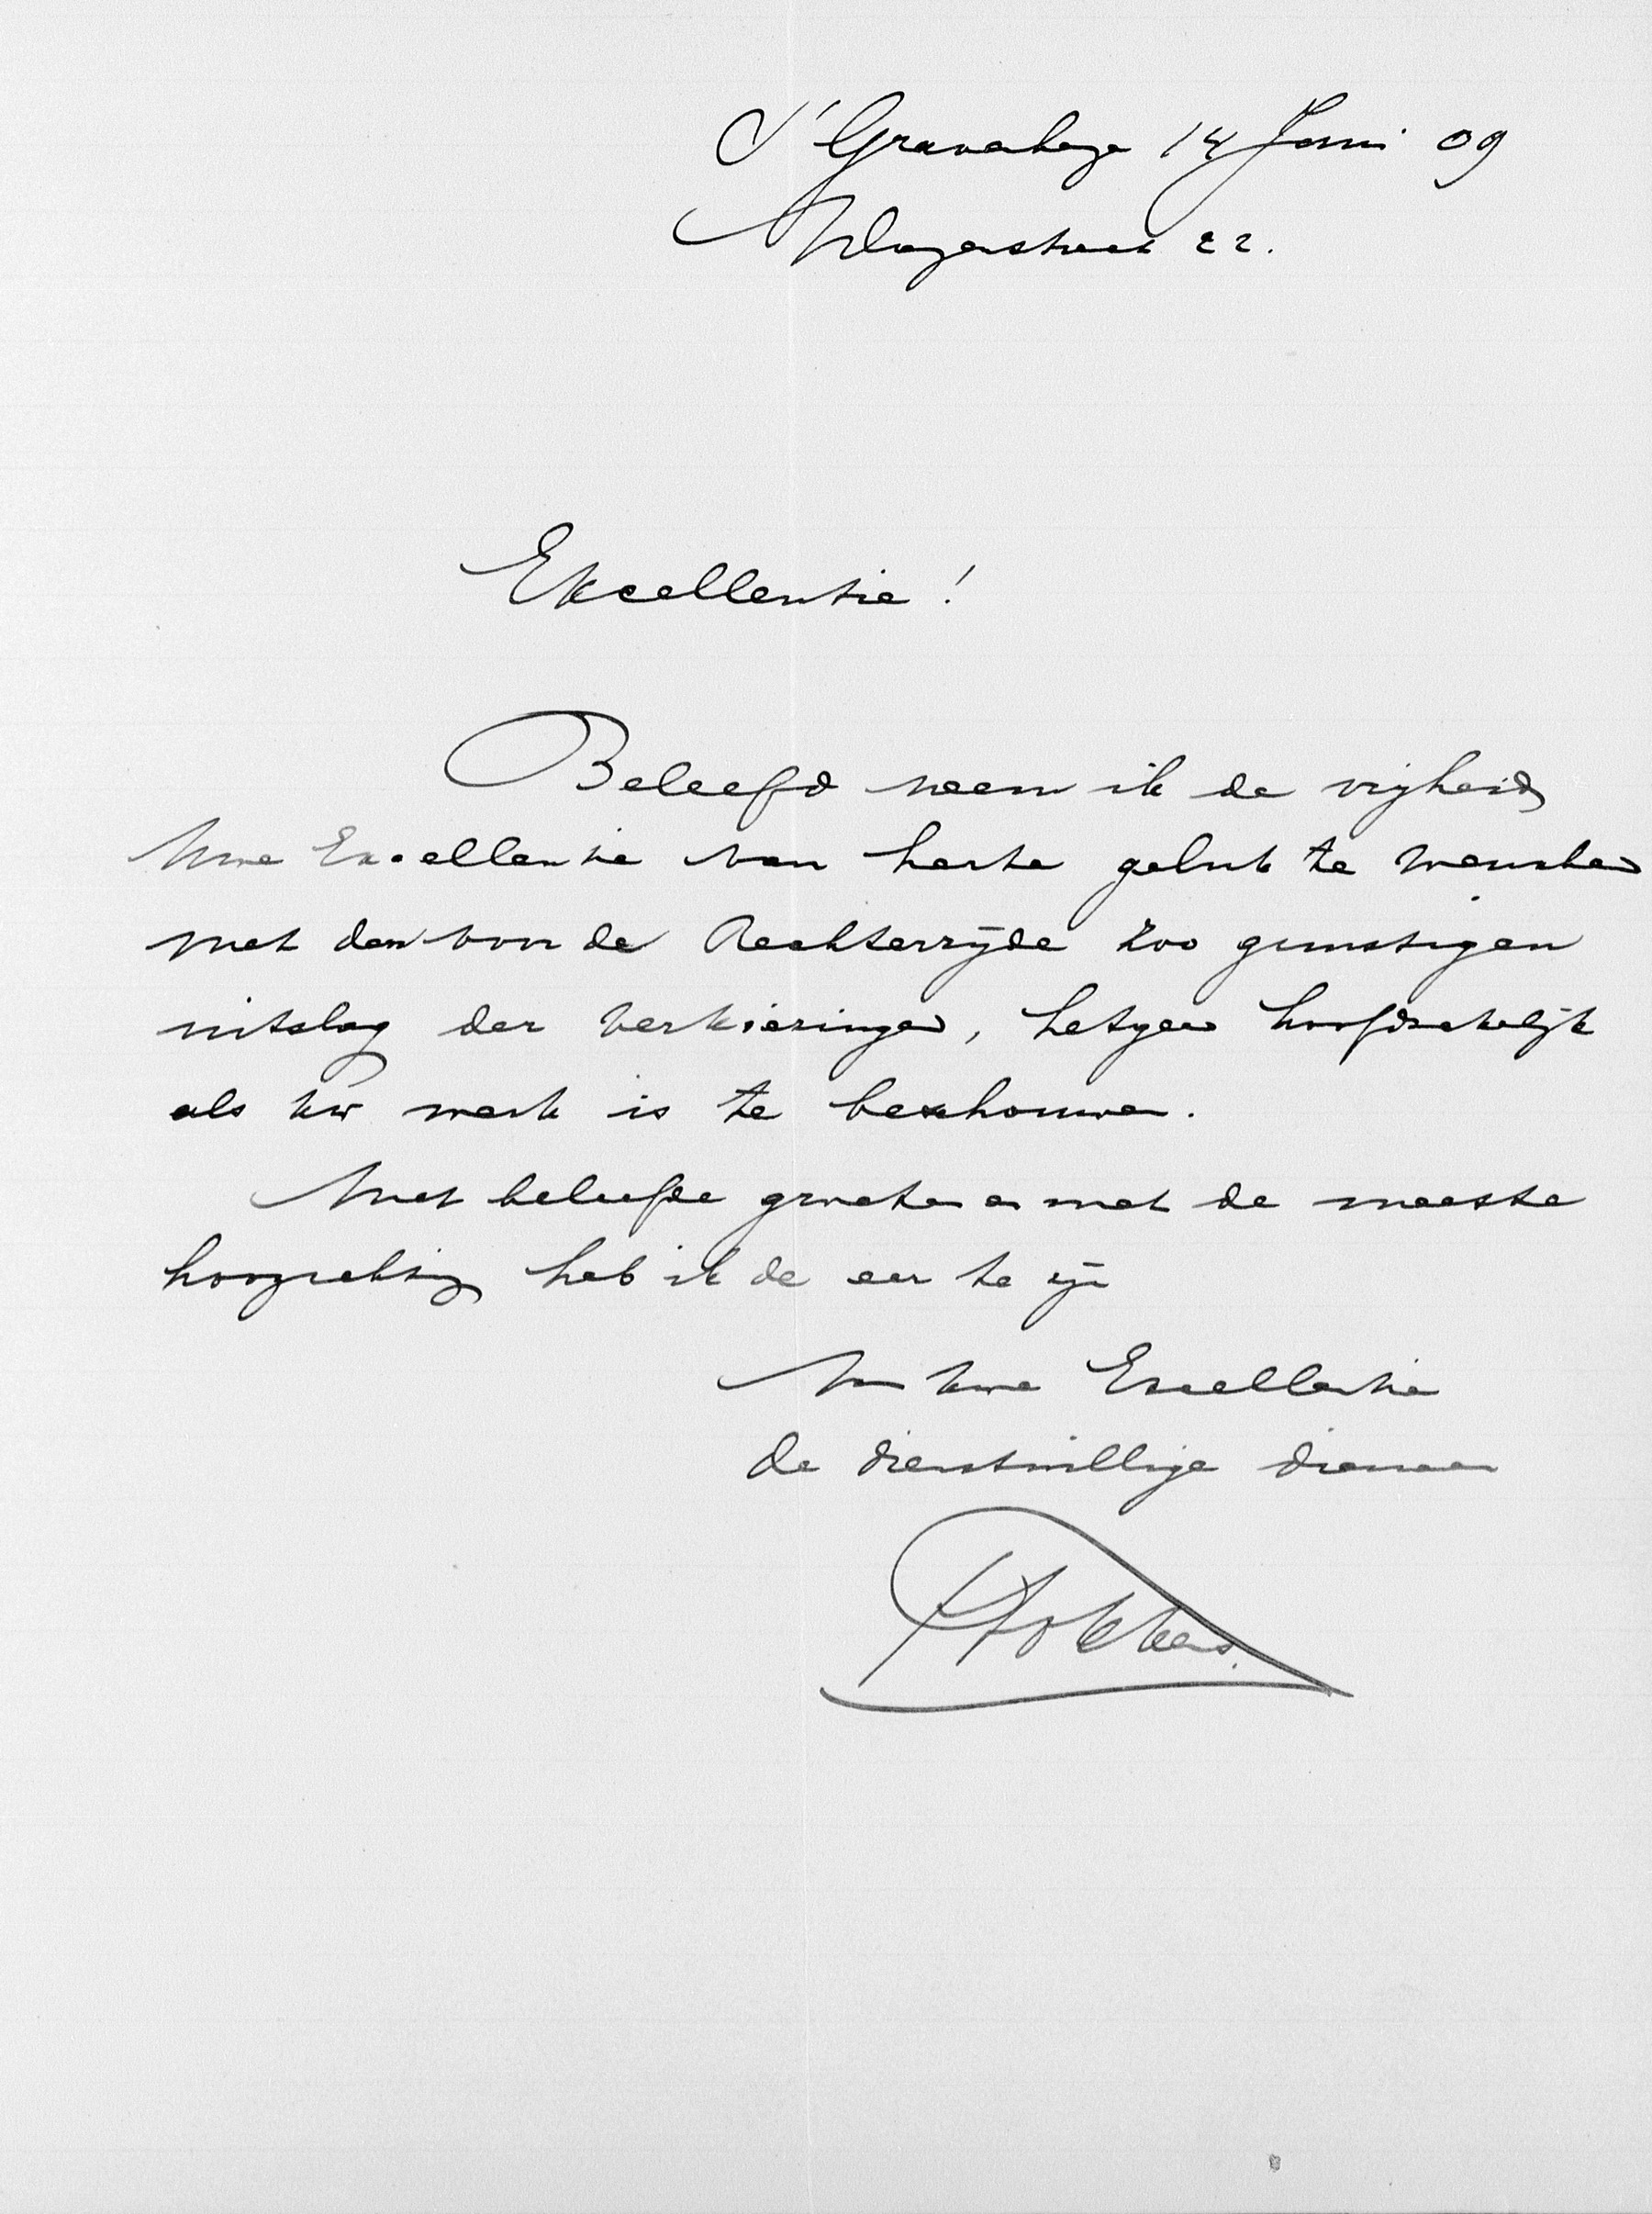 S' Gravenhage 14 Juni 09
Wagenstraat 22.
Excellentie!
Beleefd neem ik de vrijheid
Uwe Excellentie van harte geluk te wenschen
met den voor de Rechterzijde zoo gunstigen
uitslag der verkiezingen, hetgeen hoofdzakelijk
als Uw werk is te beschouwen.
Met beleefde groeten en met de meeste
hoogachting heb ik de eer te zijn
Van Uwe Excellentie
de dienstwillige dienaar